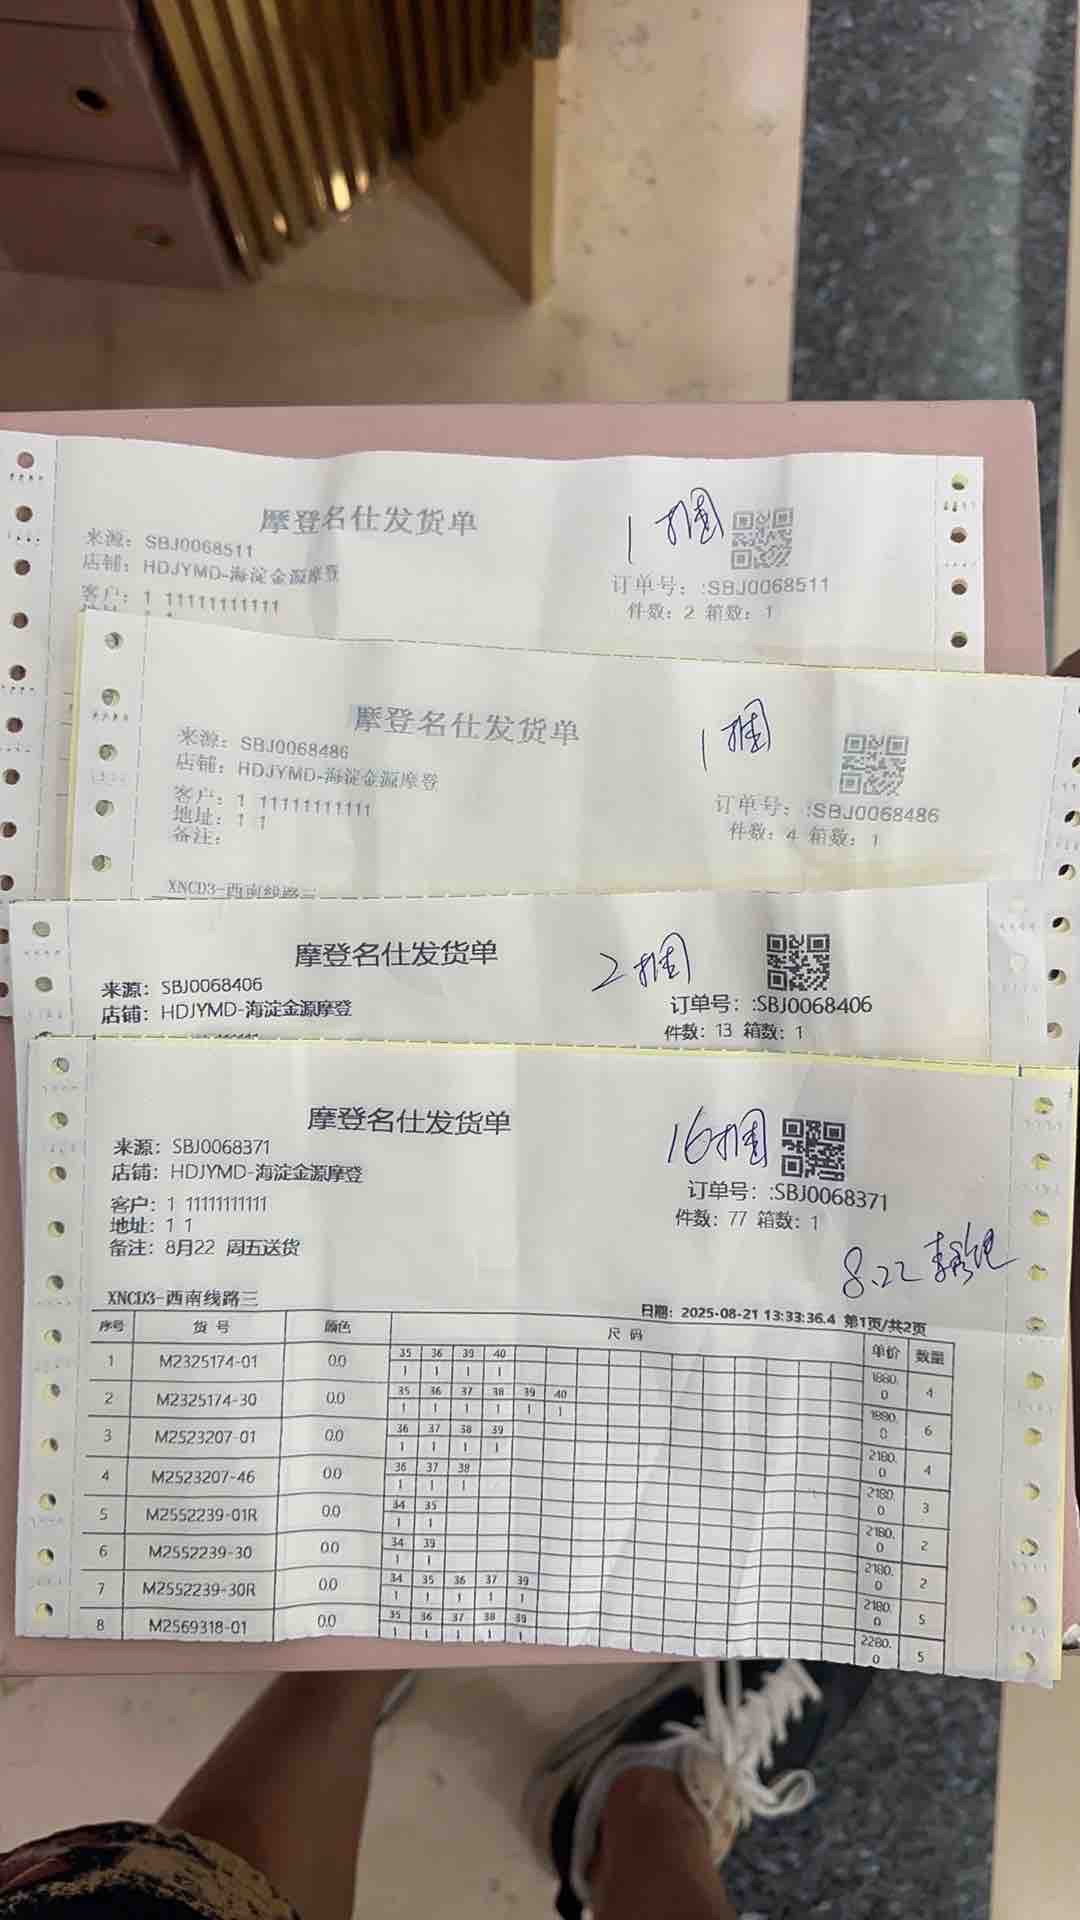 摩登名仕发货单
1捆
来源: SBJ0068511
店铺: HDJYMD-海淀金源摩登
客户: 1 11111111111
订单号: :SBJ0068511
件数: 2 箱数: 1
摩登名仕发货单
1捆
来源: SBJ0068486
店铺: HDJYMD-海淀金源摩登
客户: 1 11111111111
地址: 1 1
备注:
订单号: :SBJ0068486
件数: 4 箱数: 1
XNCD3-西南线路三
摩登名仕发货单
2捆
来源: SBJ0068406
店铺: HDJYMD-海淀金源摩登
订单号: :SBJ0068406
件数: 13 箱数: 1
摩登名仕发货单
16捆
来源: SBJ0068371
店铺: HDJYMD-海淀金源摩登
客户: 1 11111111111
地址: 1 1
备注: 8月22 周五送货
订单号: :SBJ0068371
件数: 77 箱数: 1
8.22
XNCD3-西南线路三
日期: 2025-08-21 13:33:36.4 第1页/共2页
序号 货号 颜色 尺码 单价 数量
35 36 39 40
1 M2325174-01 00 1 1 1 1 1880.0 4
35 36 37 38 39 40
2 M2325174-30 00 1 1 1 1 1 1 1880.0 6
36 37 38 39
3 M2523207-01 00 1 1 1 1 2180.0 4
36 37 38
4 M2523207-46 00 1 1 1 2180.0 3
34 35
5 M2552239-01R 00 1 1 2180.0 2
34 39
6 M2552239-30 00 1 1 2180.0 2
34 35 36 37 39
7 M2552239-30R 00 1 1 1 1 1 2180.0 5
35 36 37 38 39
8 M2569318-01 00 1 1 1 1 1 2280.0 5